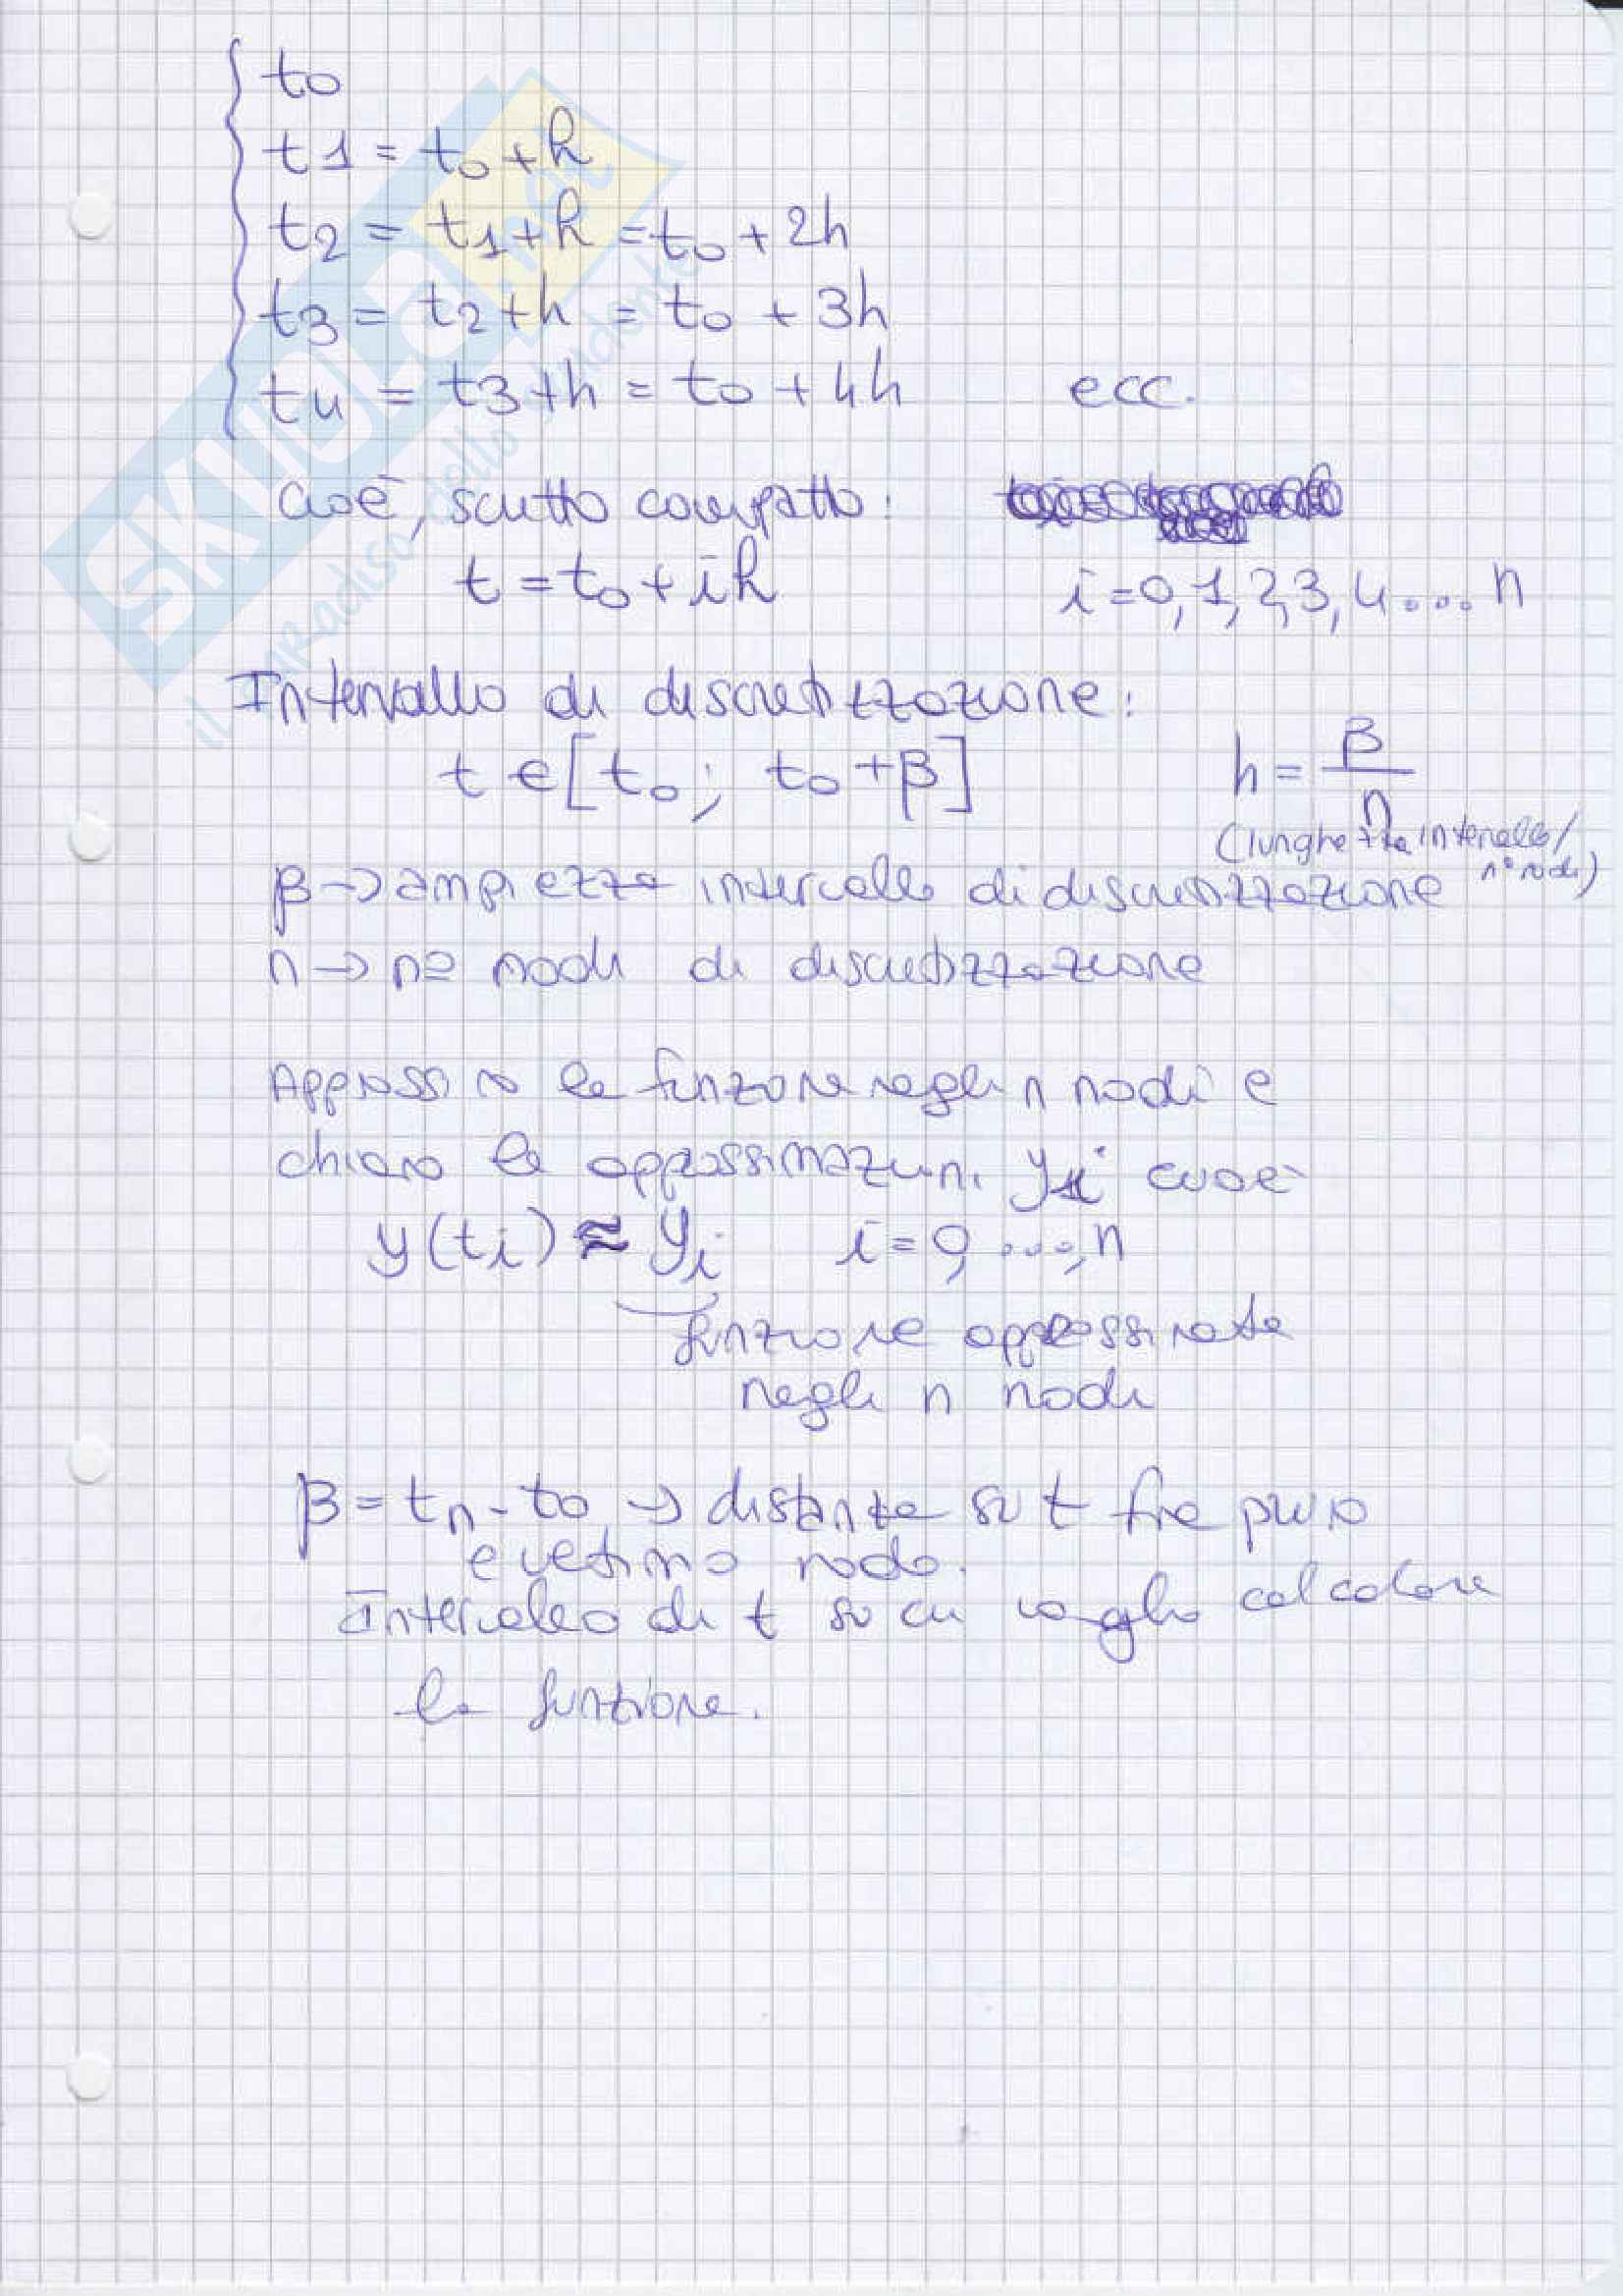 t0
t1 = t0 + h
t2 = t1 + h = t0 + 2h
t3 = t2 + h = t0 + 3h
t4 = t3 + h = t0 + 4h ecc.
cioè, scritto compatto:
t = t0 + ih i = 0, 1, 2, 3, 4 .... n
Intervallo di discretizzazione:
t ∈ [t0; t0 + β] h = β / n
(lunghezza intervallo / n° nodi)
β → ampiezza intervallo di discretizzazione
n → n° nodi di discretizzazione
Approssimo la funzione negli n nodi e
chiamo le approssimazioni yi cioè
y(ti) ≈ yi i = 0, ...., n
funzione approssimata
negli n nodi
β = tn - t0 → distanza su t fra primo
e ultimo nodo.
Intervallo di t su cui voglio calcolare
la funzione.
SKUOLA.net
il paradiso dello studente